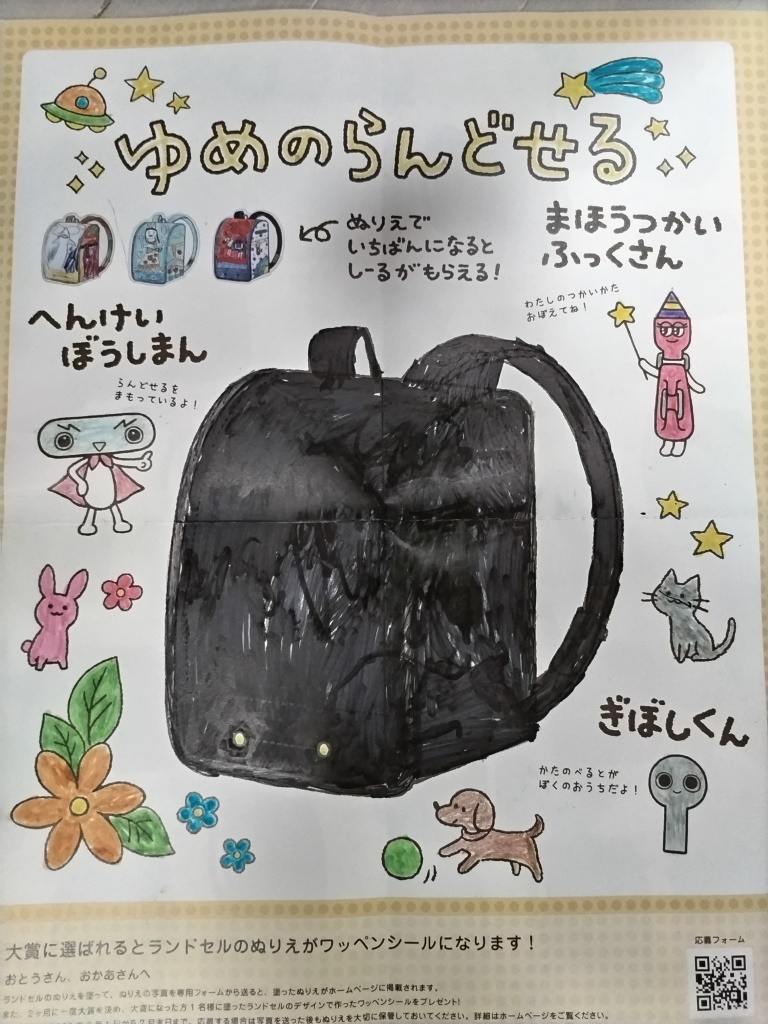 ゆめのらんどせる
ぬりえで
いちばんになると
しーるがもらえる!
まほうつかい
ふっくさん
わたしのつかいかた
おぼえてね!
へんけい
ぼうしまん
らんどせるを
まもっているよ!
ぎぼしくん
かたのべるとが
ぼくのおうちだよ!
大賞に選ばれるとランドセルのぬりえがワッペンシールになります!
応募フォーム
おとうさん、おかあさんへ
ランドセルのぬりえを塗って、ぬりえの写真を専用フォームから送ると、塗ったぬりえがホームページに掲載されます。
また、2ヶ月に一度大賞を決め、大賞になった方1名様に塗ったランドセルのデザインで作ったワッペンシールをプレゼント!
応募する場合は写真を送った後もぬりえを大切に保管しておいてください。詳細はホームページをご覧ください。